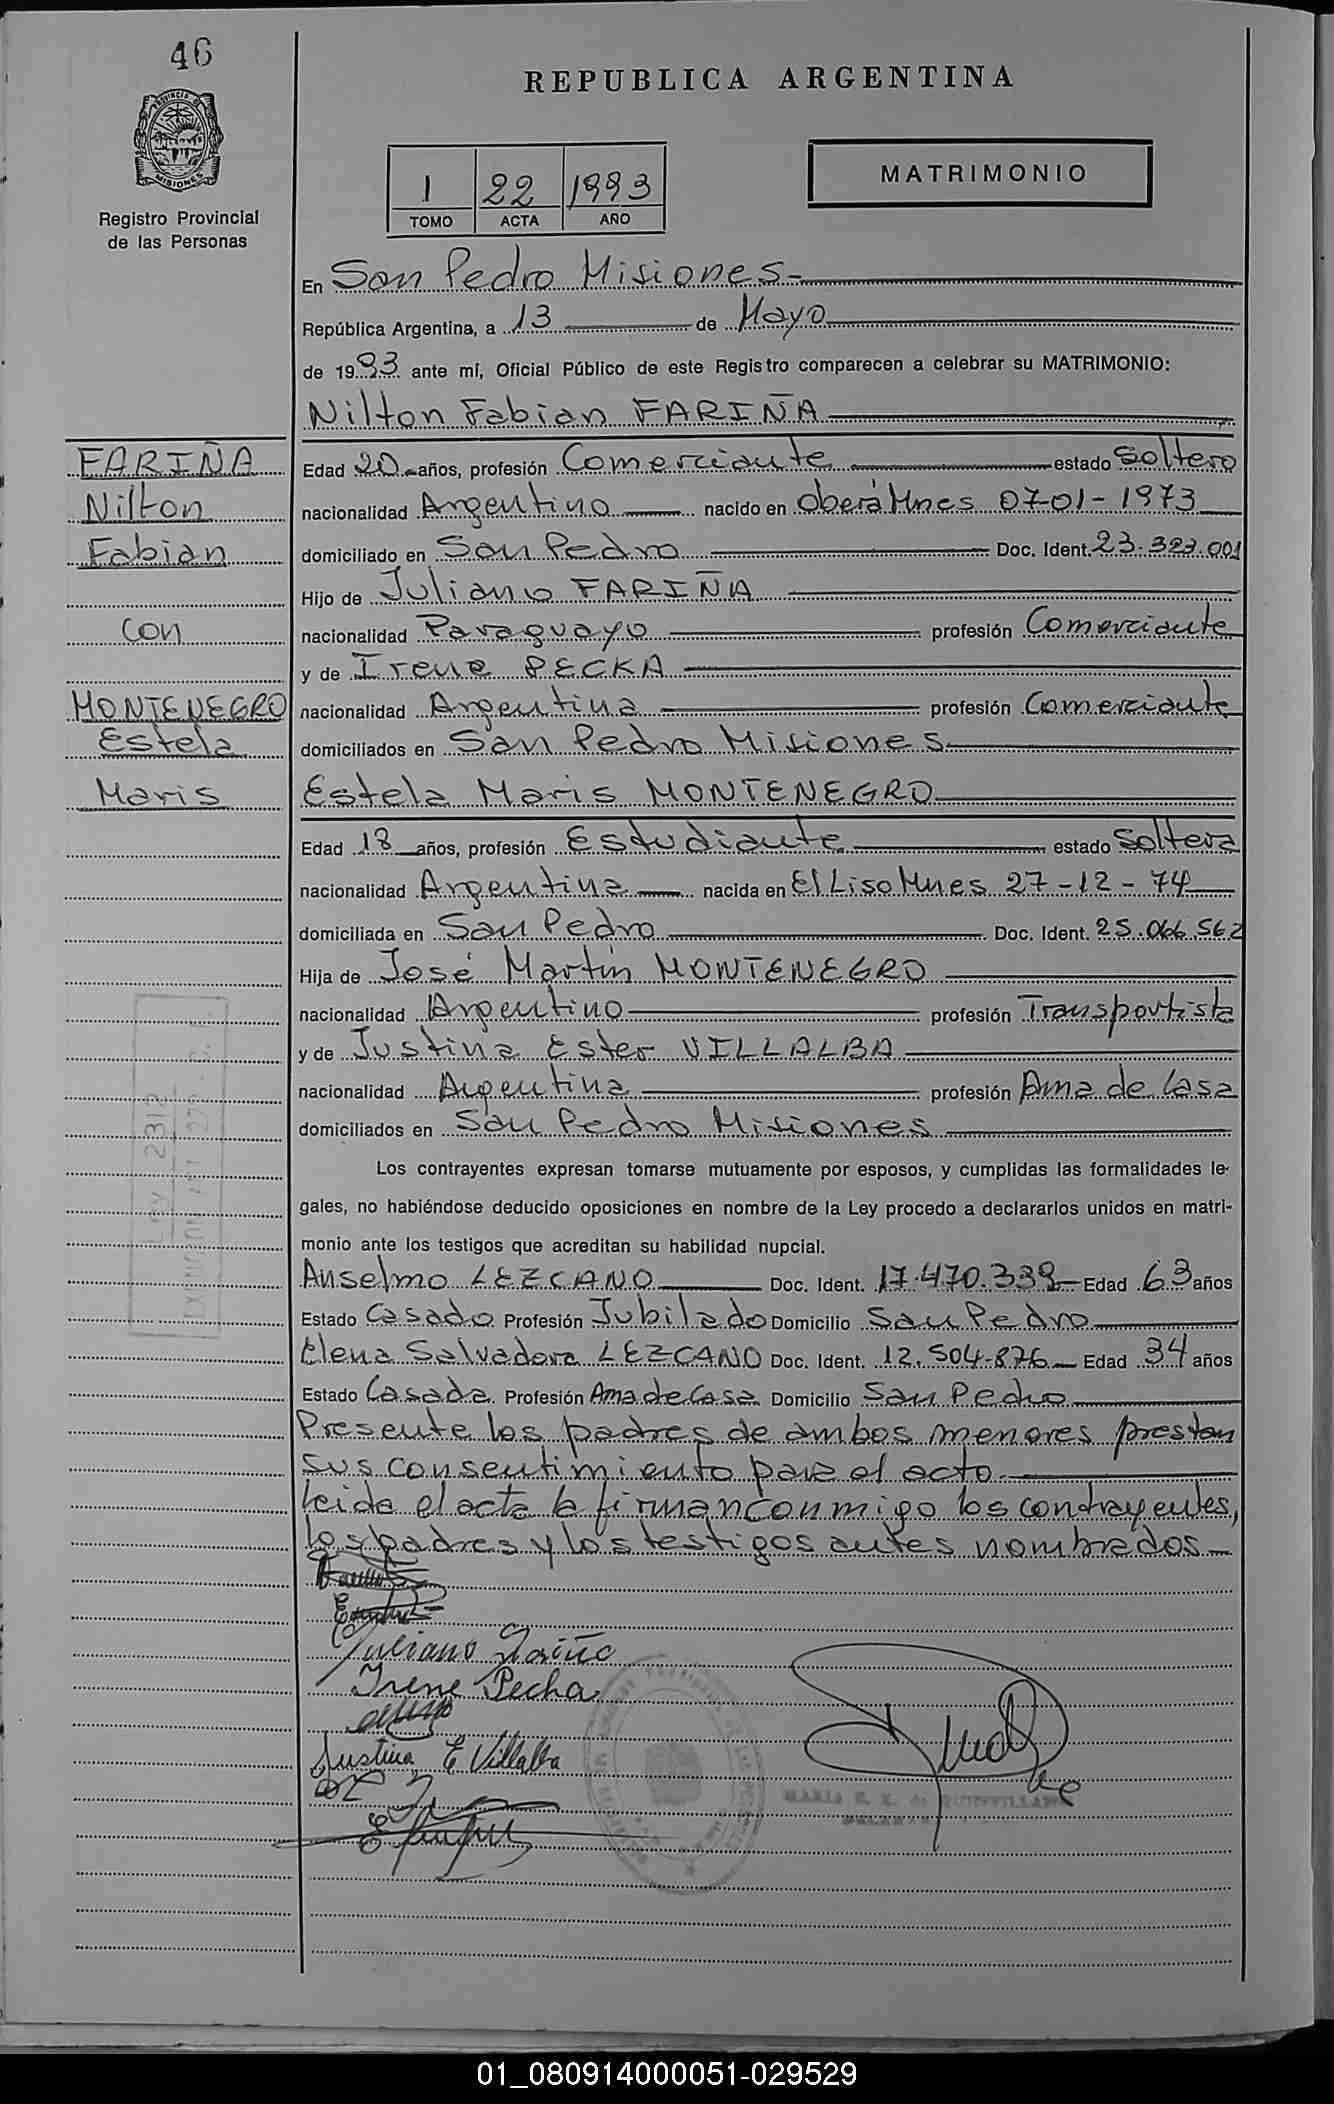 46
REPUBLICA ARGENTINA
PROVINCIA DE
MISIONES
Registro Provincial
de las Personas
1 22 1993
TOMO ACTA AÑO
MATRIMONIO
En San Pedro Misiones
República Argentina, a 13 de Mayo
de 1993 ante mí, Oficial Público de este Registro comparecen a celebrar su MATRIMONIO:
Nilton Fabian FARIÑA
FARIÑA
Nilton
Fabian
con
MONTENEGRO
Estela
Maris
Edad 20 años, profesión Comerciante estado Soltero
nacionalidad Argentino nacido en Oberá Mnes 07-01-1973
domiciliado en San Pedro Doc. Ident. 23.323.001
Hijo de Juliano FARIÑA
nacionalidad Paraguayo profesión Comerciante
y de Irene PECKA
nacionalidad Argentina profesión Comerciante
domiciliados en San Pedro Misiones
Estela Maris MONTENEGRO
Edad 18 años, profesión Estudiante estado Soltera
nacionalidad Argentina nacida en El Liso Mnes 27-12-74
domiciliada en San Pedro Doc. Ident. 25.066.562
Hija de José Martín MONTENEGRO
nacionalidad Argentino profesión Transportista
y de Justina Ester VILLALBA
nacionalidad Argentina profesión Ama de Casa
domiciliados en San Pedro Misiones
Los contrayentes expresan tomarse mutuamente por esposos, y cumplidas las formalidades le-
gales, no habiéndose deducido oposiciones en nombre de la Ley procedo a declararlos unidos en matri-
monio ante los testigos que acreditan su habilidad nupcial.
Anselmo LEZCANO Doc. Ident. 17.470.339 Edad 63 años
Estado Casado Profesión Jubilado Domicilio San Pedro
Elena Salvadora LEZCANO Doc. Ident. 12.504.876 Edad 34 años
Estado Casada Profesión Ama de Casa Domicilio San Pedro
Presente los padres de ambos menores prestan
sus consentimiento para el acto
leida el acta la firman conmigo los contrayentes,
los padres y los testigos antes nombrados
Juliano Fariña
Irene Pecka
Justina E Villalba
LEY 2312
01_080914000051-029529